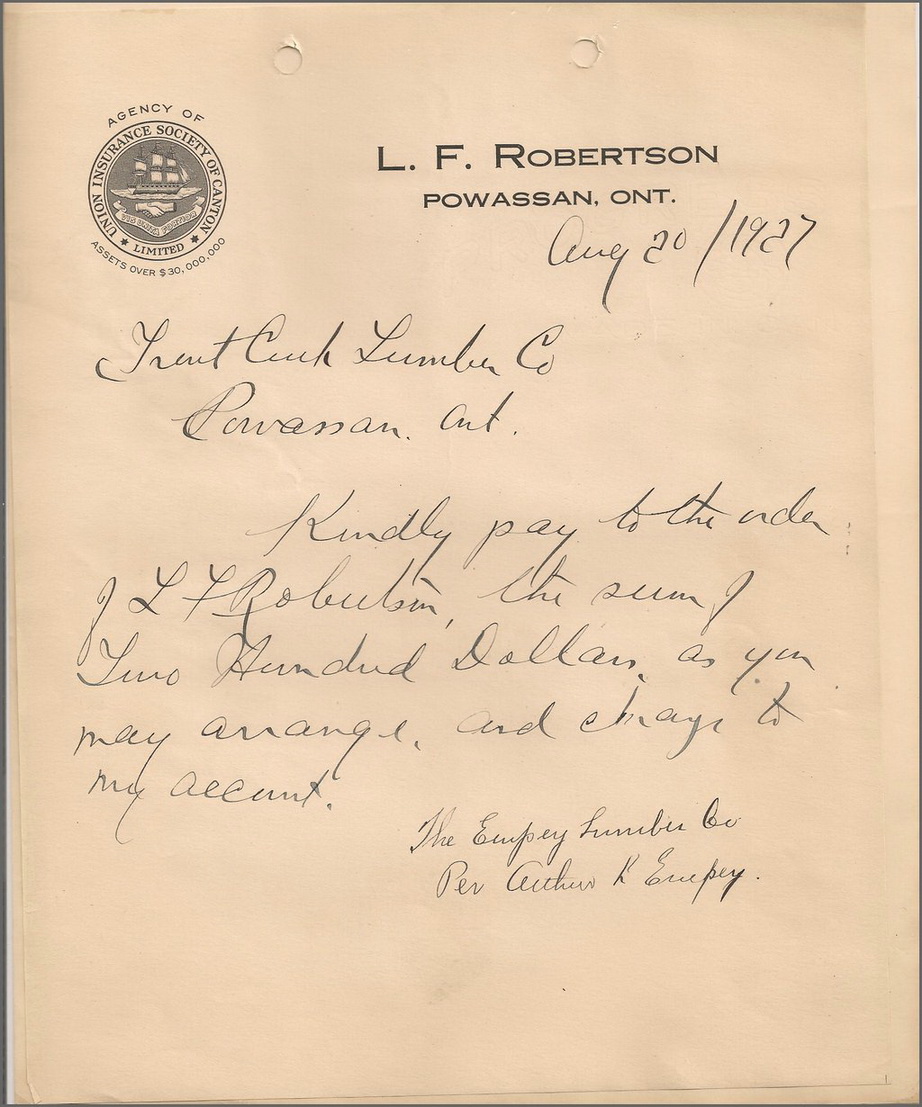 AGENCY OF
UNION INSURANCE SOCIETY OF CANTON
LIMITED
ASSETS OVER $30,000,000
L. F. ROBERTSON
POWASSAN, ONT.
Aug 20 / 1927
Trout Creek Lumber Co
Powassan. Ont.
Kindly pay to the order
of L F Robertson, the sum of
Two Hundred Dollars, as you
may arrange, and charge to
my account.
The Empey Lumber Co
Per Arthur K Empey.